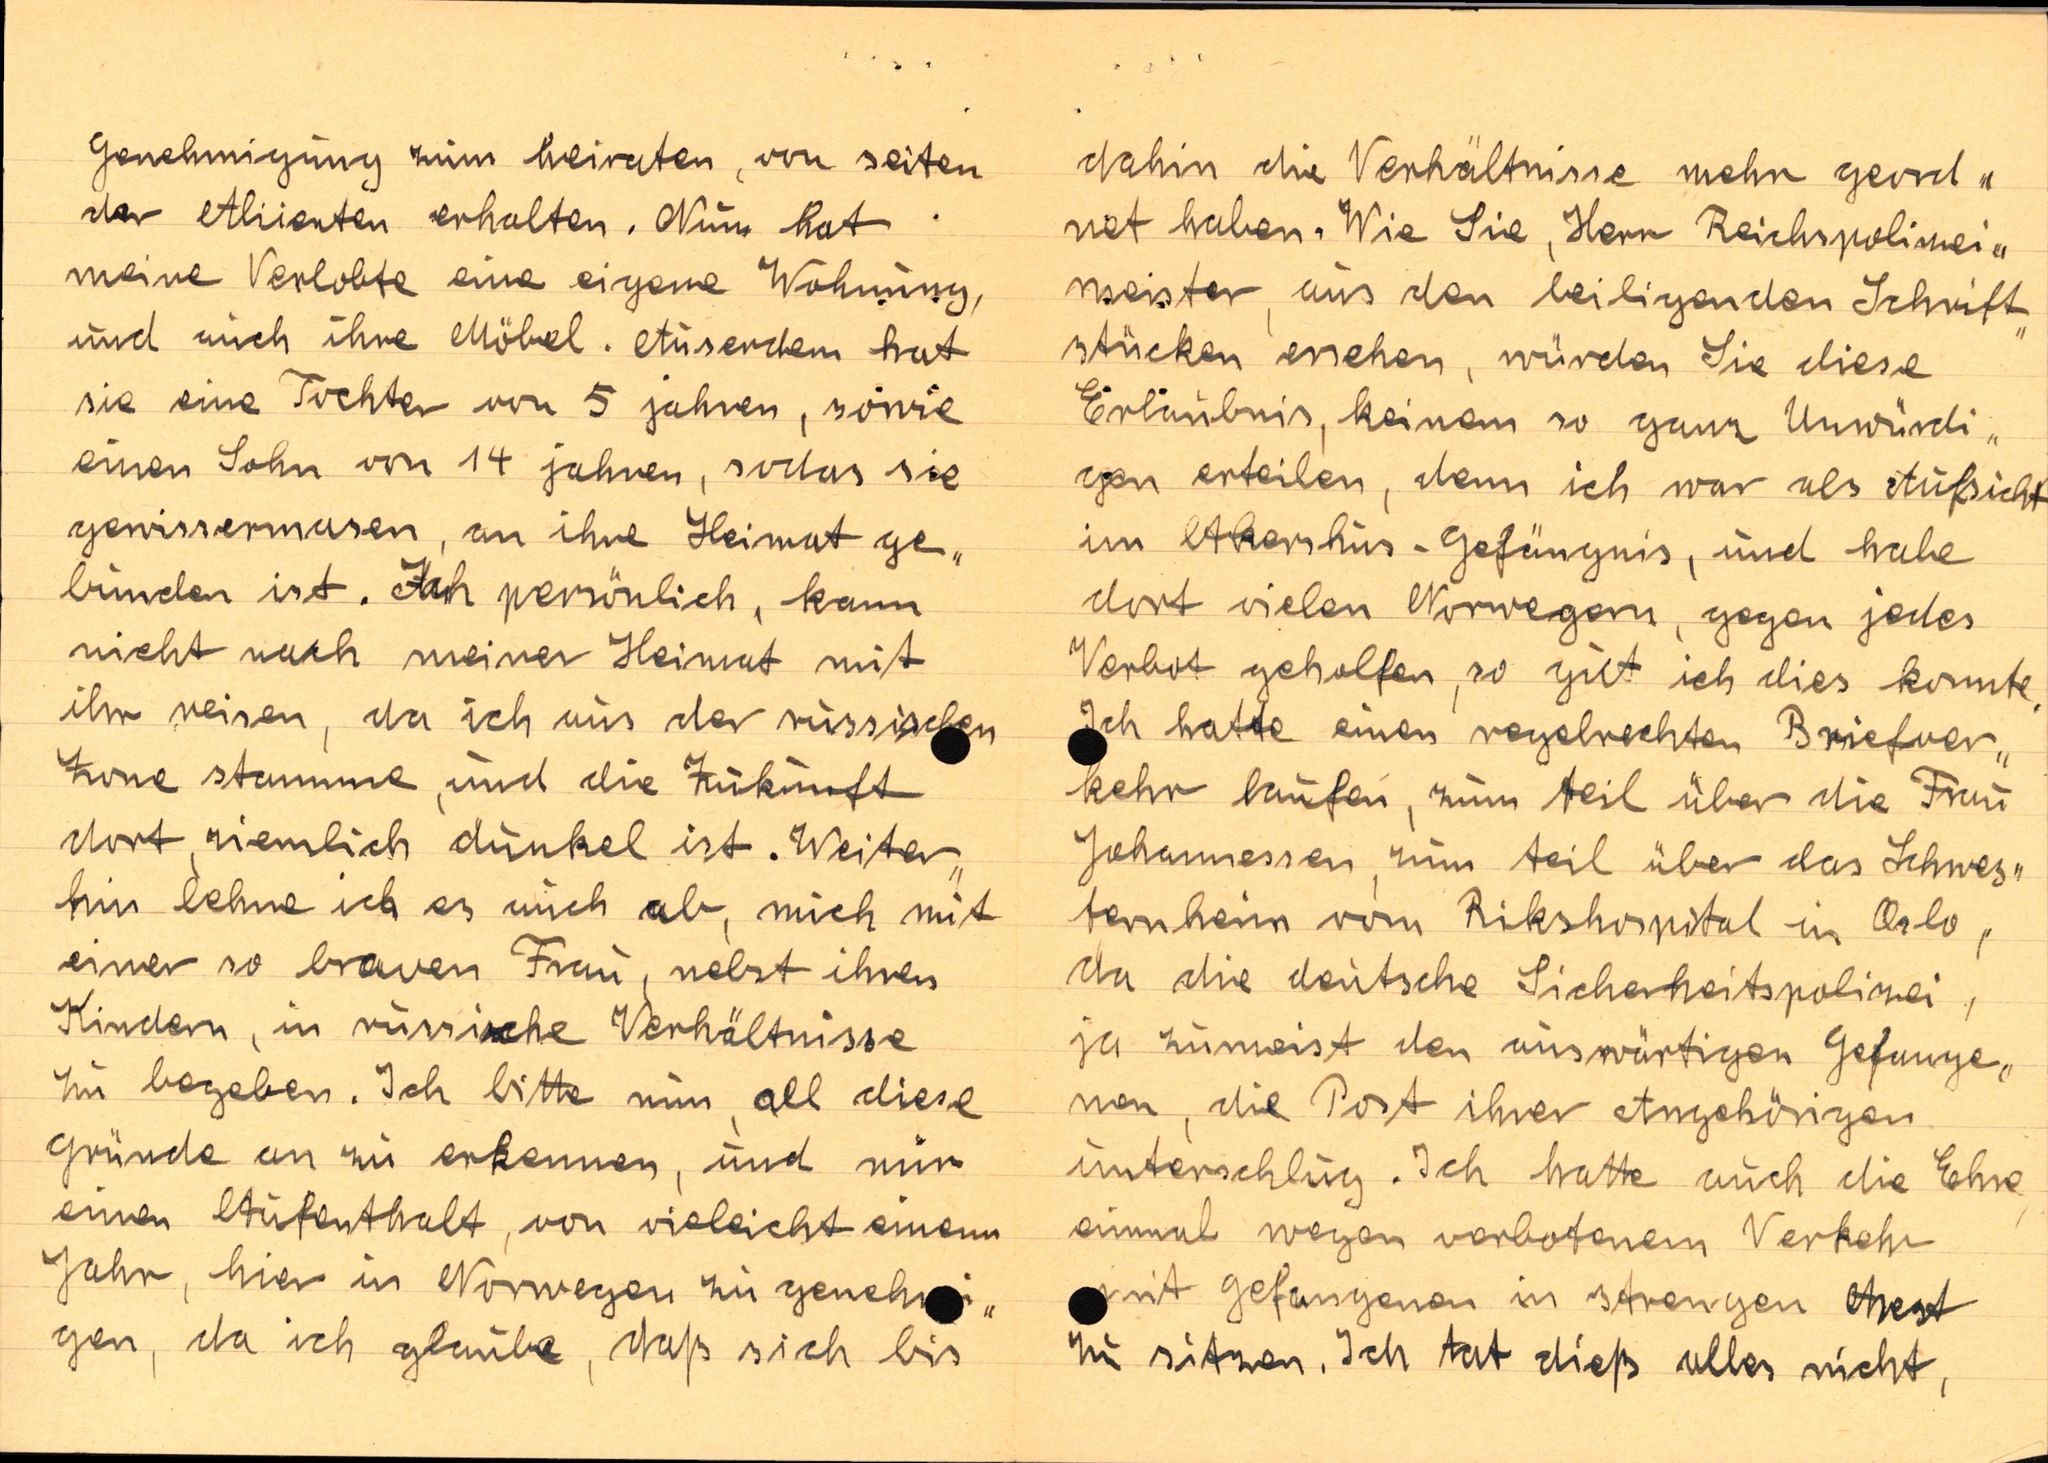 Genehmigung zum heiraten, von seiten
der Aliierten erhalten. Nun hat
meine Verlobte eine eigene Wohnung,
und auch ihre Möbel. Auserdem hat
sie eine Tochter von 5 jahren, sowie
einen Sohn von 14 jahren, sodas sie
gewissermasen, an ihre Heimat ge„
bunden ist. Ich persönlich, kann
nicht nach meiner Heimat mit
ihr reisen, da ich aus der russischen
Zone stamme, und die Zukunft
dort, ziemlich dunkel ist. Weiter„
hin lehne ich es auch ab, mich mit
einer so braven Frau, nebst ihren
Kindern, in russische Verhältnisse
zu begeben. Ich bitte nun, all diese
Gründe an zu erkennen, und mir
einen Aufenthalt, von vieleicht einem
Jahr, hier in Norwegen zu genehmi„
gen, da ich glaube, daß sich bis
dahin die Verhältnisse mehr geord„
net haben. Wie Sie, Herr Reichspolizei„
meister, aus den beiligenden Schrift„
stücken ersehen, würden Sie diese
Erlaubnis, keinem so ganz Unwürdi„
gen erteilen, denn ich war als Aufsicht
im Akershus-Gefängnis, und habe
dort vielen Norwegern, gegen jedes
Verbot geholfen, so gut ich dies konnte.
Ich hatte einen regelrechten Briefver„
kehr laufen, zum teil über die Frau
Johannessen, zum teil über das Schwes„
ternheim vom Rikshospital in Oslo,
da die deutsche Sicherheitspolizei,
ja zumeist den auswärtigen Gefange„
nen, die Post ihrer Angehörigen
unterschlug. Ich hatte auch die Ehre,
einmal wegen verbotenem Verkehr
mit Gefangenen in strengen Arest
zu sitzen. Ich tat dieß alles nicht,